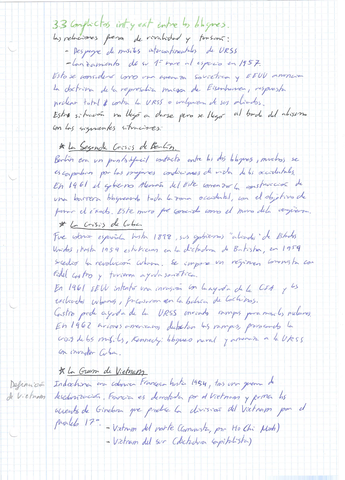 3.3 Conflictos int y ext entre los bloques.
Las relaciones fueron de rivalidad y tensión:
- Despegue de misiles intercontinentales de URSS
- Lanzamiento de su 1ª nave al espacio en 1957.
Esto se consideró como una amenaza soviética y EEUU anuncian
la doctrina de la represalia masiva de Eisenhower, respuesta
nuclear total contra la URSS o cualquiera de sus aliados.
Esta situación no llegó a darse pero se llegó al borde del abismo
con las siguientes situaciones:
* La Segunda Crisis de Berlín
Berlín era un punto contacto entre los dos bloques, muchos se
escapaban por las mejores condiciones de vida de los occidentales.
En 1961 el gobierno Alemán del Este comenzó la construcción de
una barrera bloqueando toda la zona occidental, con el objetivo de
frenar el éxodo. Este muro fue conocido como el muro de la vergüenza.
* La Crisis de Cuba
Fue colonia española hasta 1898, sus gobiernos "aliados" de Estados
Unidos hasta 1959 estuvieron en la dictadura de Batista, en 1959
sucedió la revolución cubana. Se impuso un régimen comunista con
Fidel Castro y tuvieron ayuda soviética.
En 1961 EEUU intentó una invasión con la ayuda de la CIA y los
exiliados cubanos, fracasaron en la bahía de Cochinos.
Castro pidió ayuda a la URSS enviando rampas para misiles nucleares.
En 1962 aviones americanos detectan las rampas, provocando la
crisis de los misiles, Kennedy: bloqueo naval y amenaza a la URSS
con invadir Cuba.
* La Guerra de Vietnam
Descolonización de Vietnam
Indochina era colonia Francesa hasta 1954, tras una guerra de
descolonización. Francia es derrotada por el Vietminh y firma los
acuerdos de Ginebra que produce la división del Vietnam por el
paralelo 17º.
- Vietnam del norte (comunista, por Ho Chi Minh)
- Vietnam del sur (dictadura capitalista)